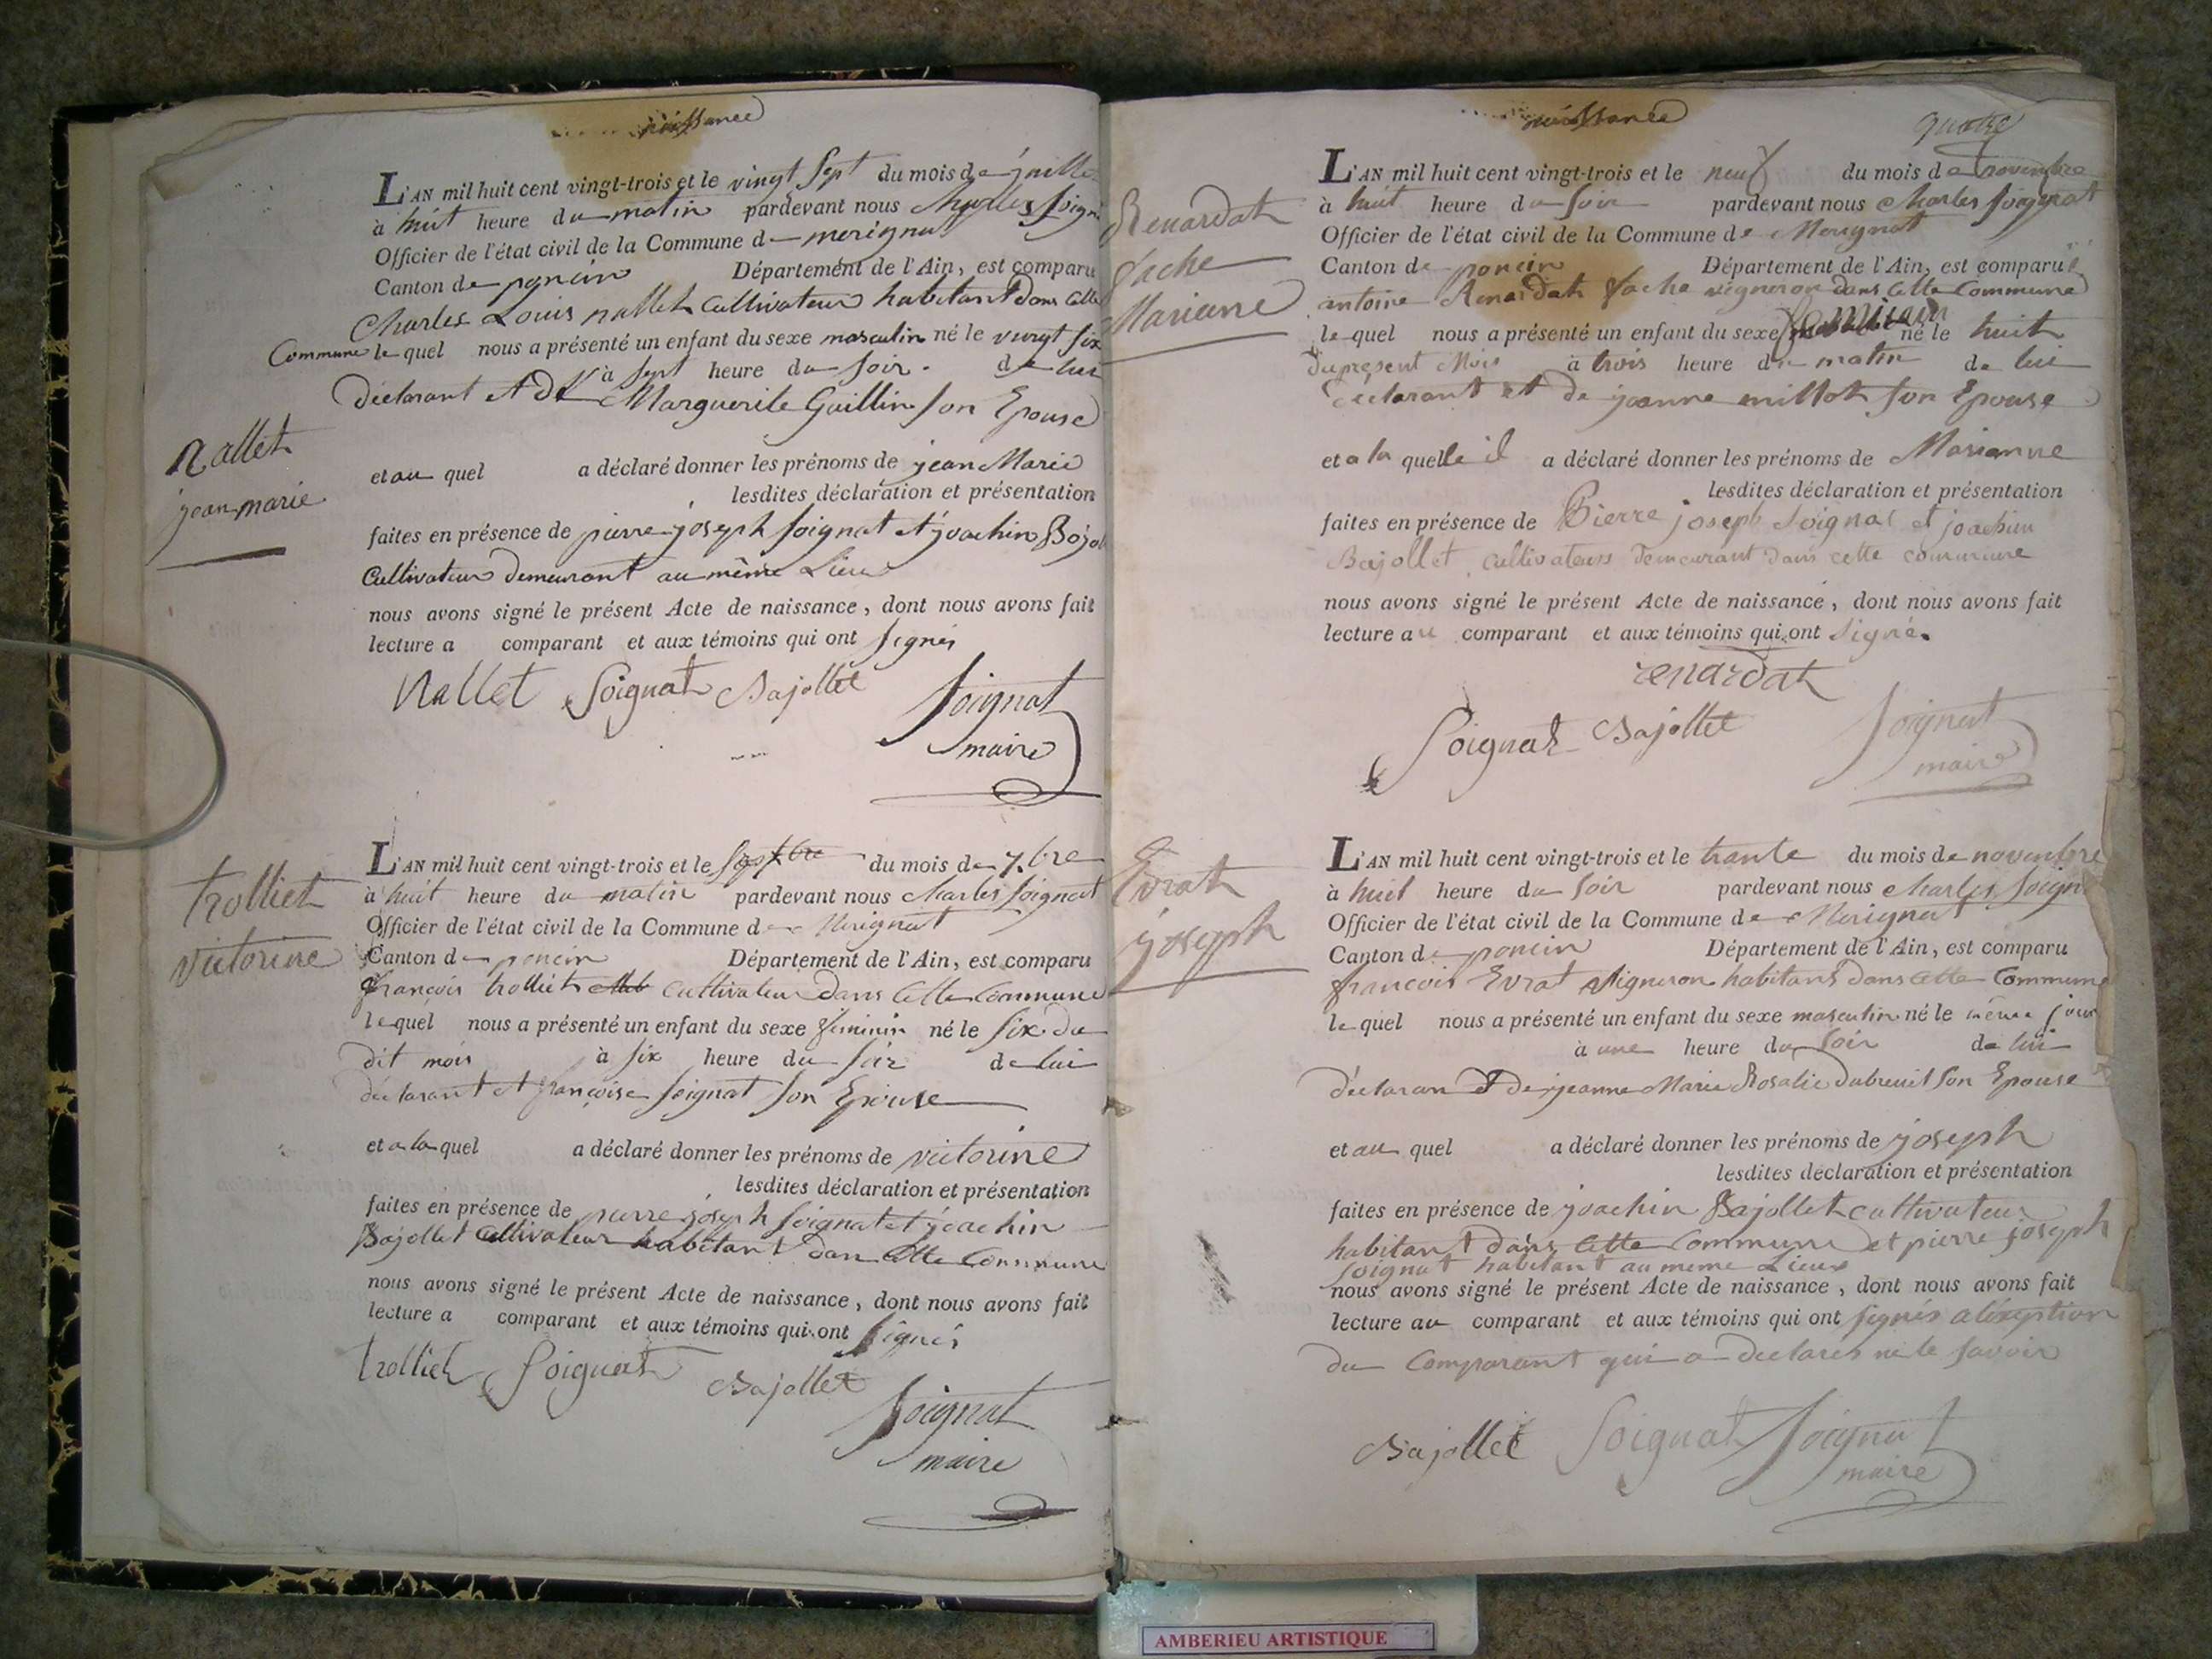 naissance
L'AN mil huit cent vingt-trois et le vingt sept du mois de juillet
à huit heure du matin pardevant nous Charles Soigna
Officier de l'état civil de la Commune de merignat
Canton de poncin Département de l'Ain, est comparu
Charles Louis nallet Cultivateur habitant dans Cette
Commune le quel nous a présenté un enfant du sexe masculin né le vingt six
à sept heure du soir. de lui
déclarant et de Marguerite Guillin son Epouse
Nallet
jean marie
et au quel a déclaré donner les prénoms de jean Marie
lesdites déclaration et présentation
faites en présence de pierre joseph soignat et joachin Bajol
Cultivateur demeurant au même Lieu
nous avons signé le présent Acte de naissance, dont nous avons fait
lecture a comparant et aux témoins qui ont signés
Nallet Soignat Bajollet Soignat
maire
trolliet
victorine
L'AN mil huit cent vingt-trois et le du mois de 7.bre
à huit heure du matin pardevant nous Charles Soignat
Officier de l'état civil de la Commune de Merignat
Canton de poncin Département de l'Ain, est comparu
françois trolliet cultivateur dans Cette Commune
le quel nous a présenté un enfant du sexe feminin né le six du
dit mois à six heure du soir de lui
déclarant et françoise soignat son Epouse
et a la quel a déclaré donner les prénoms de victorine
lesdites déclaration et présentation
faites en présence de pierre joseph soignat et joachin
Bajollet Cultivateur habitant dan Cette Commune
nous avons signé le présent Acte de naissance, dont nous avons fait
lecture a comparant et aux témoins qui ont signés
trolliet Soignat Bajollet Soignat
maire
naissance quatre
Renardat
fache
Marianne
L'AN mil huit cent vingt-trois et le neuf du mois de novembre
à huit heure du soir pardevant nous Charles Soignat
Officier de l'état civil de la Commune de Merignat
Canton de poncin Département de l'Ain, est comparu
antoine Renardat fache vigneron dans Cette Commune
le quel nous a présenté un enfant du sexe né le huit
du present Mois à trois heure du matin de lui
déclarant et de jeanne millot son Epouse
et a la quelle il a déclaré donner les prénoms de Marianne
lesdites déclaration et présentation
faites en présence de Pierre joseph Soignat et joachim
Bajollet cultivateurs demeurant dans cette commune
nous avons signé le présent Acte de naissance, dont nous avons fait
lecture au comparant et aux témoins qui ont signé.
renardat
Soignat Bajollet Soignat
maire
Evrat
joseph
L'AN mil huit cent vingt-trois et le trante du mois de novembre
à huit heure du soir pardevant nous Charles Soign
Officier de l'état civil de la Commune de Merignat
Canton de poncin Département de l'Ain, est comparu
françois Evrat vigneron habitant dans Cette Commune
le quel nous a présenté un enfant du sexe masculin né le même jour
à une heure du soir de lui
déclaran et de jeanne Marie Rosalie Dubreuil son Epouse
et au quel a déclaré donner les prénoms de joseph
lesdites déclaration et présentation
faites en présence de joachin Bajollet cultivateur
habitant dans Cette Commune et pierre joseph
soignat habitant au meme Lieux
nous avons signé le présent Acte de naissance, dont nous avons fait
lecture au comparant et aux témoins qui ont signés a léxeption
du Comparant qui a declarés ne le savoir
Bajollet Soignat Soignat
maire
AMBERIEU ARTISTIQUE